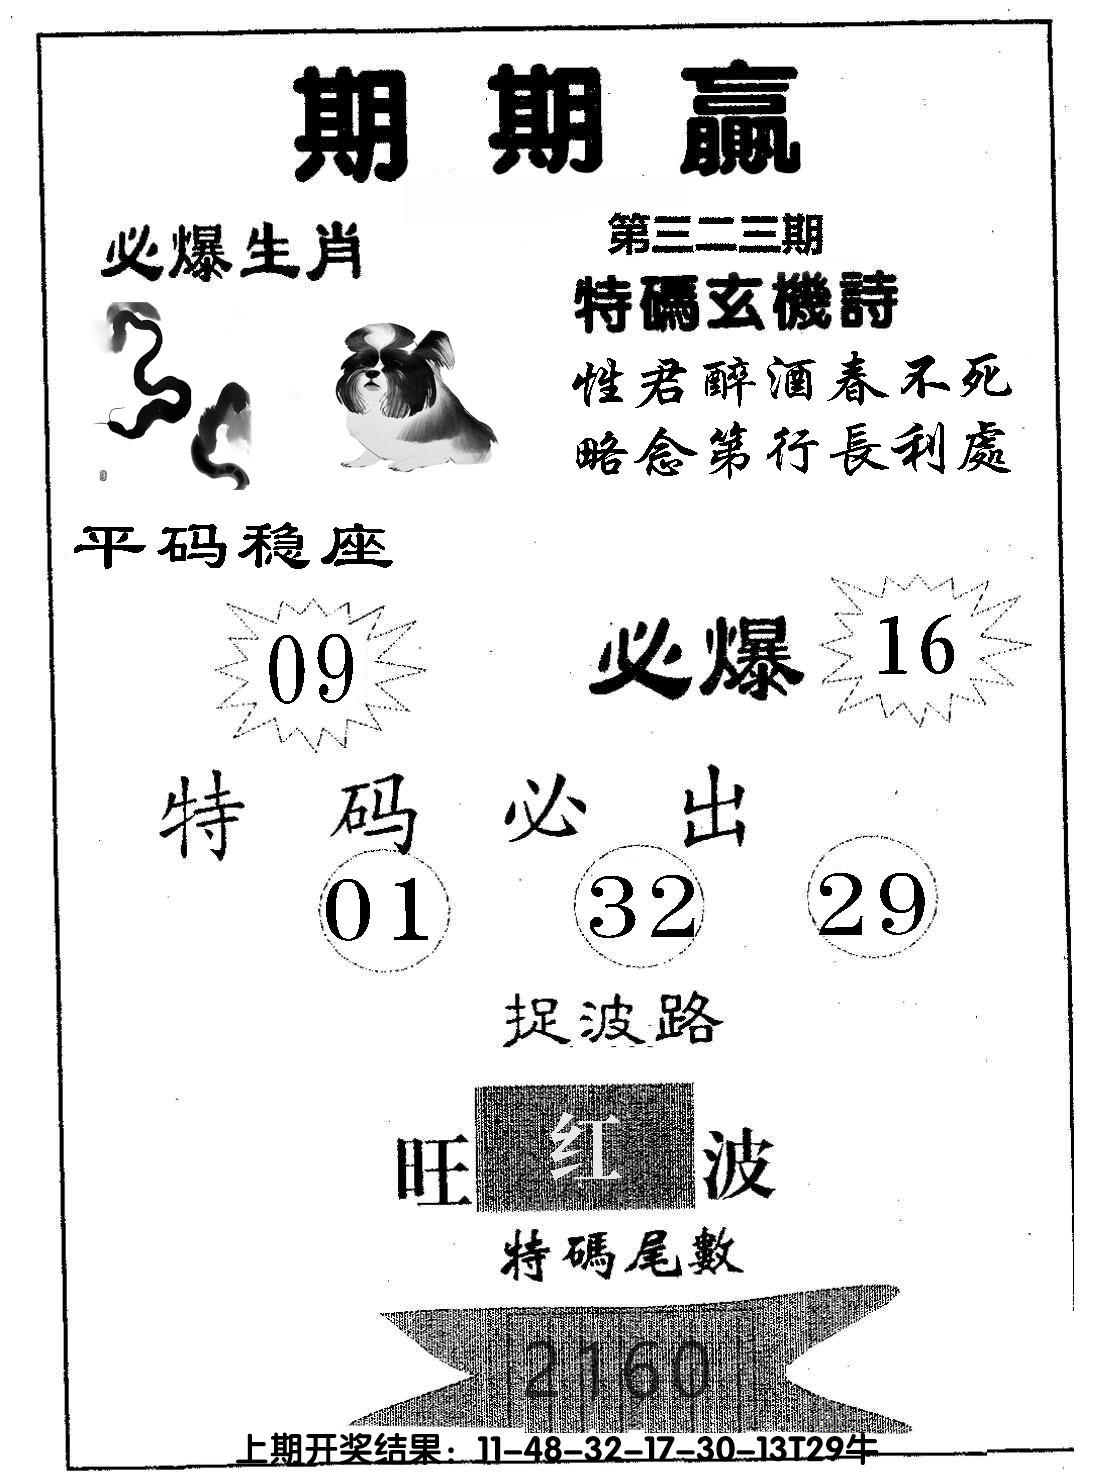 期期赢
必爆生肖
第三二三期
特碼玄機詩
性君醉酒春不死
略念第行長利處
平码稳座
09
必爆
16
特码必出
01 32 29
捉波路
旺红波
特碼尾數
2160
上期开奖结果：11-48-32-17-30-13T29牛